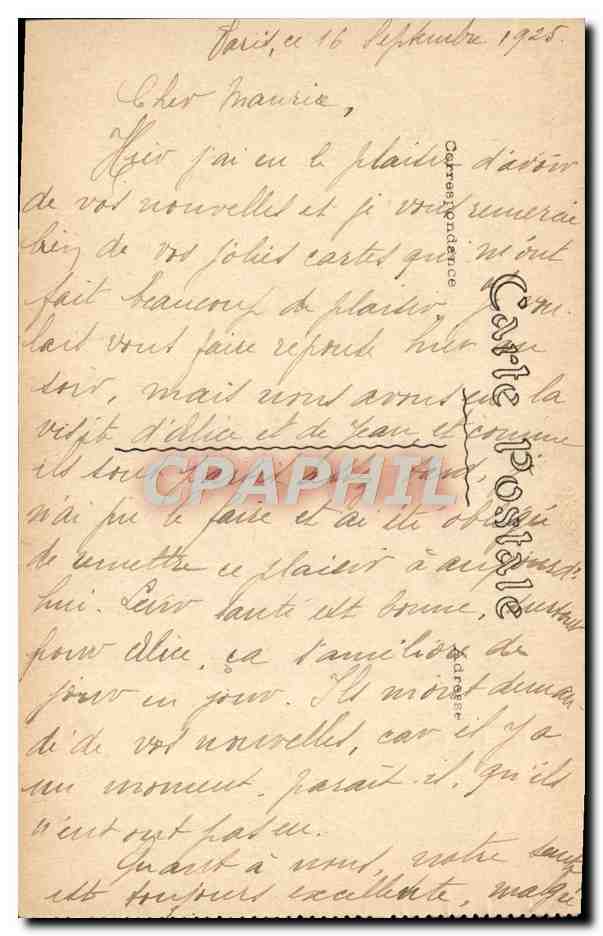 Paris, ce 16 Septembre 1925.
Cher Maurice,
Hier j'ai eu le plaisir d'avoir
de vos nouvelles et je vous remercie
bien de vos jolies cartes qui m'ont
fait beaucoup de plaisir. Je vou-
lait vous faire réponse hier au
soir, mais nous avons eu la
visite d'Alice et de Jean et comme
ils sont partis tard,
n'ai pu le faire et ai été obligé
de remettre ce plaisir à aujourd'-
hui. Leur santé est bonne, surtout
pour Alice, ça s'améliore de
jour en jour. Ils m'ont deman-
dé de vos nouvelles, car il y a
un moment, parait-il, qu'ils
n'ent ont pas eu.
Quant à nous, notre santé
est toujours excellente, malgré
Correspondance
Carte Postale
Adresse
CPAPHIL